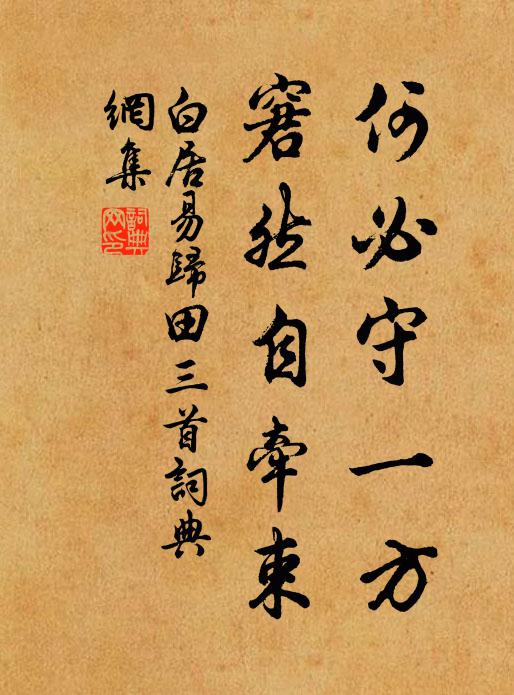 何必守一方
窘然自牽束
白居易歸田三首詞典
網集
詞典
网印